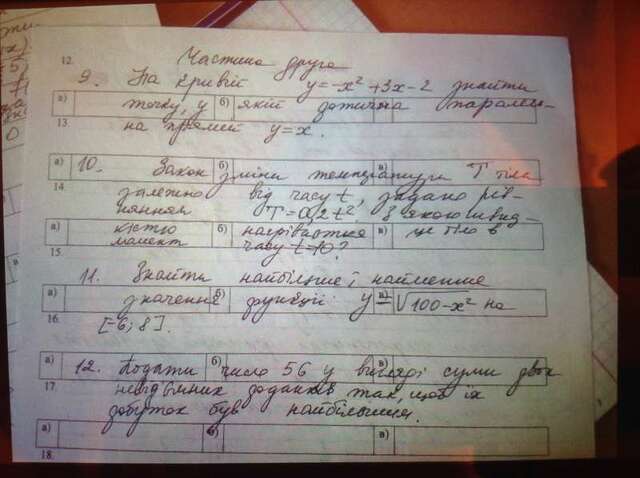 12.
Частина друга
9. На кривій y=-x²+3x-2 знайти
а) б)
точку, у якій дотична паралель-
13
на прямій y=x.
а) 10. Закон б) зміни температури в) T тіла
14. залежно від часу t, задано рів-
нянням T=0,2t². З якою швид-
а) б) в)
кістю нагрівається це тіло в
15. момент часу t=10?
11. Знайти найбільше і найменше
а) б) в)
значення функції: y=√100-x² на
16.
[-6; 8].
а) 12. Подати б) число 56 у вигляді в) суми двох
17. невід'ємних доданків так, щоб їх
добуток був найбільшим.
а) б) в)
18.